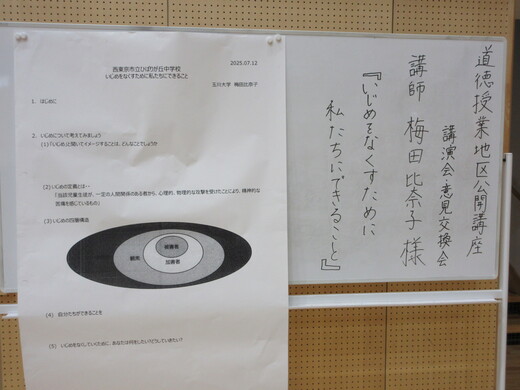 2025.07.12
西東京市立ひばりが丘中学校
いじめをなくすために私たちにできること
玉川大学 梅田比奈子
1. はじめに
2. いじめについて考えてみましょう
(1)「いじめ」と聞いてイメージすることは、どんなことでしょうか
(2)いじめの定義とは…
「当該児童生徒が、一定の人間関係のある者から、心理的、物理的な攻撃を受けたことにより、精神的な
苦痛を感じているもの」
(3)いじめの四層構造
被害者
加害者
観衆
(4) 自分たちができることを
(5) いじめをなくしていくために、あなたは何をしたい?どうしていきたい?
道徳授業地区公開講座
講演会・意見交換会
講師 梅田比奈子様
『いじめをなくすために
私たちにできること』